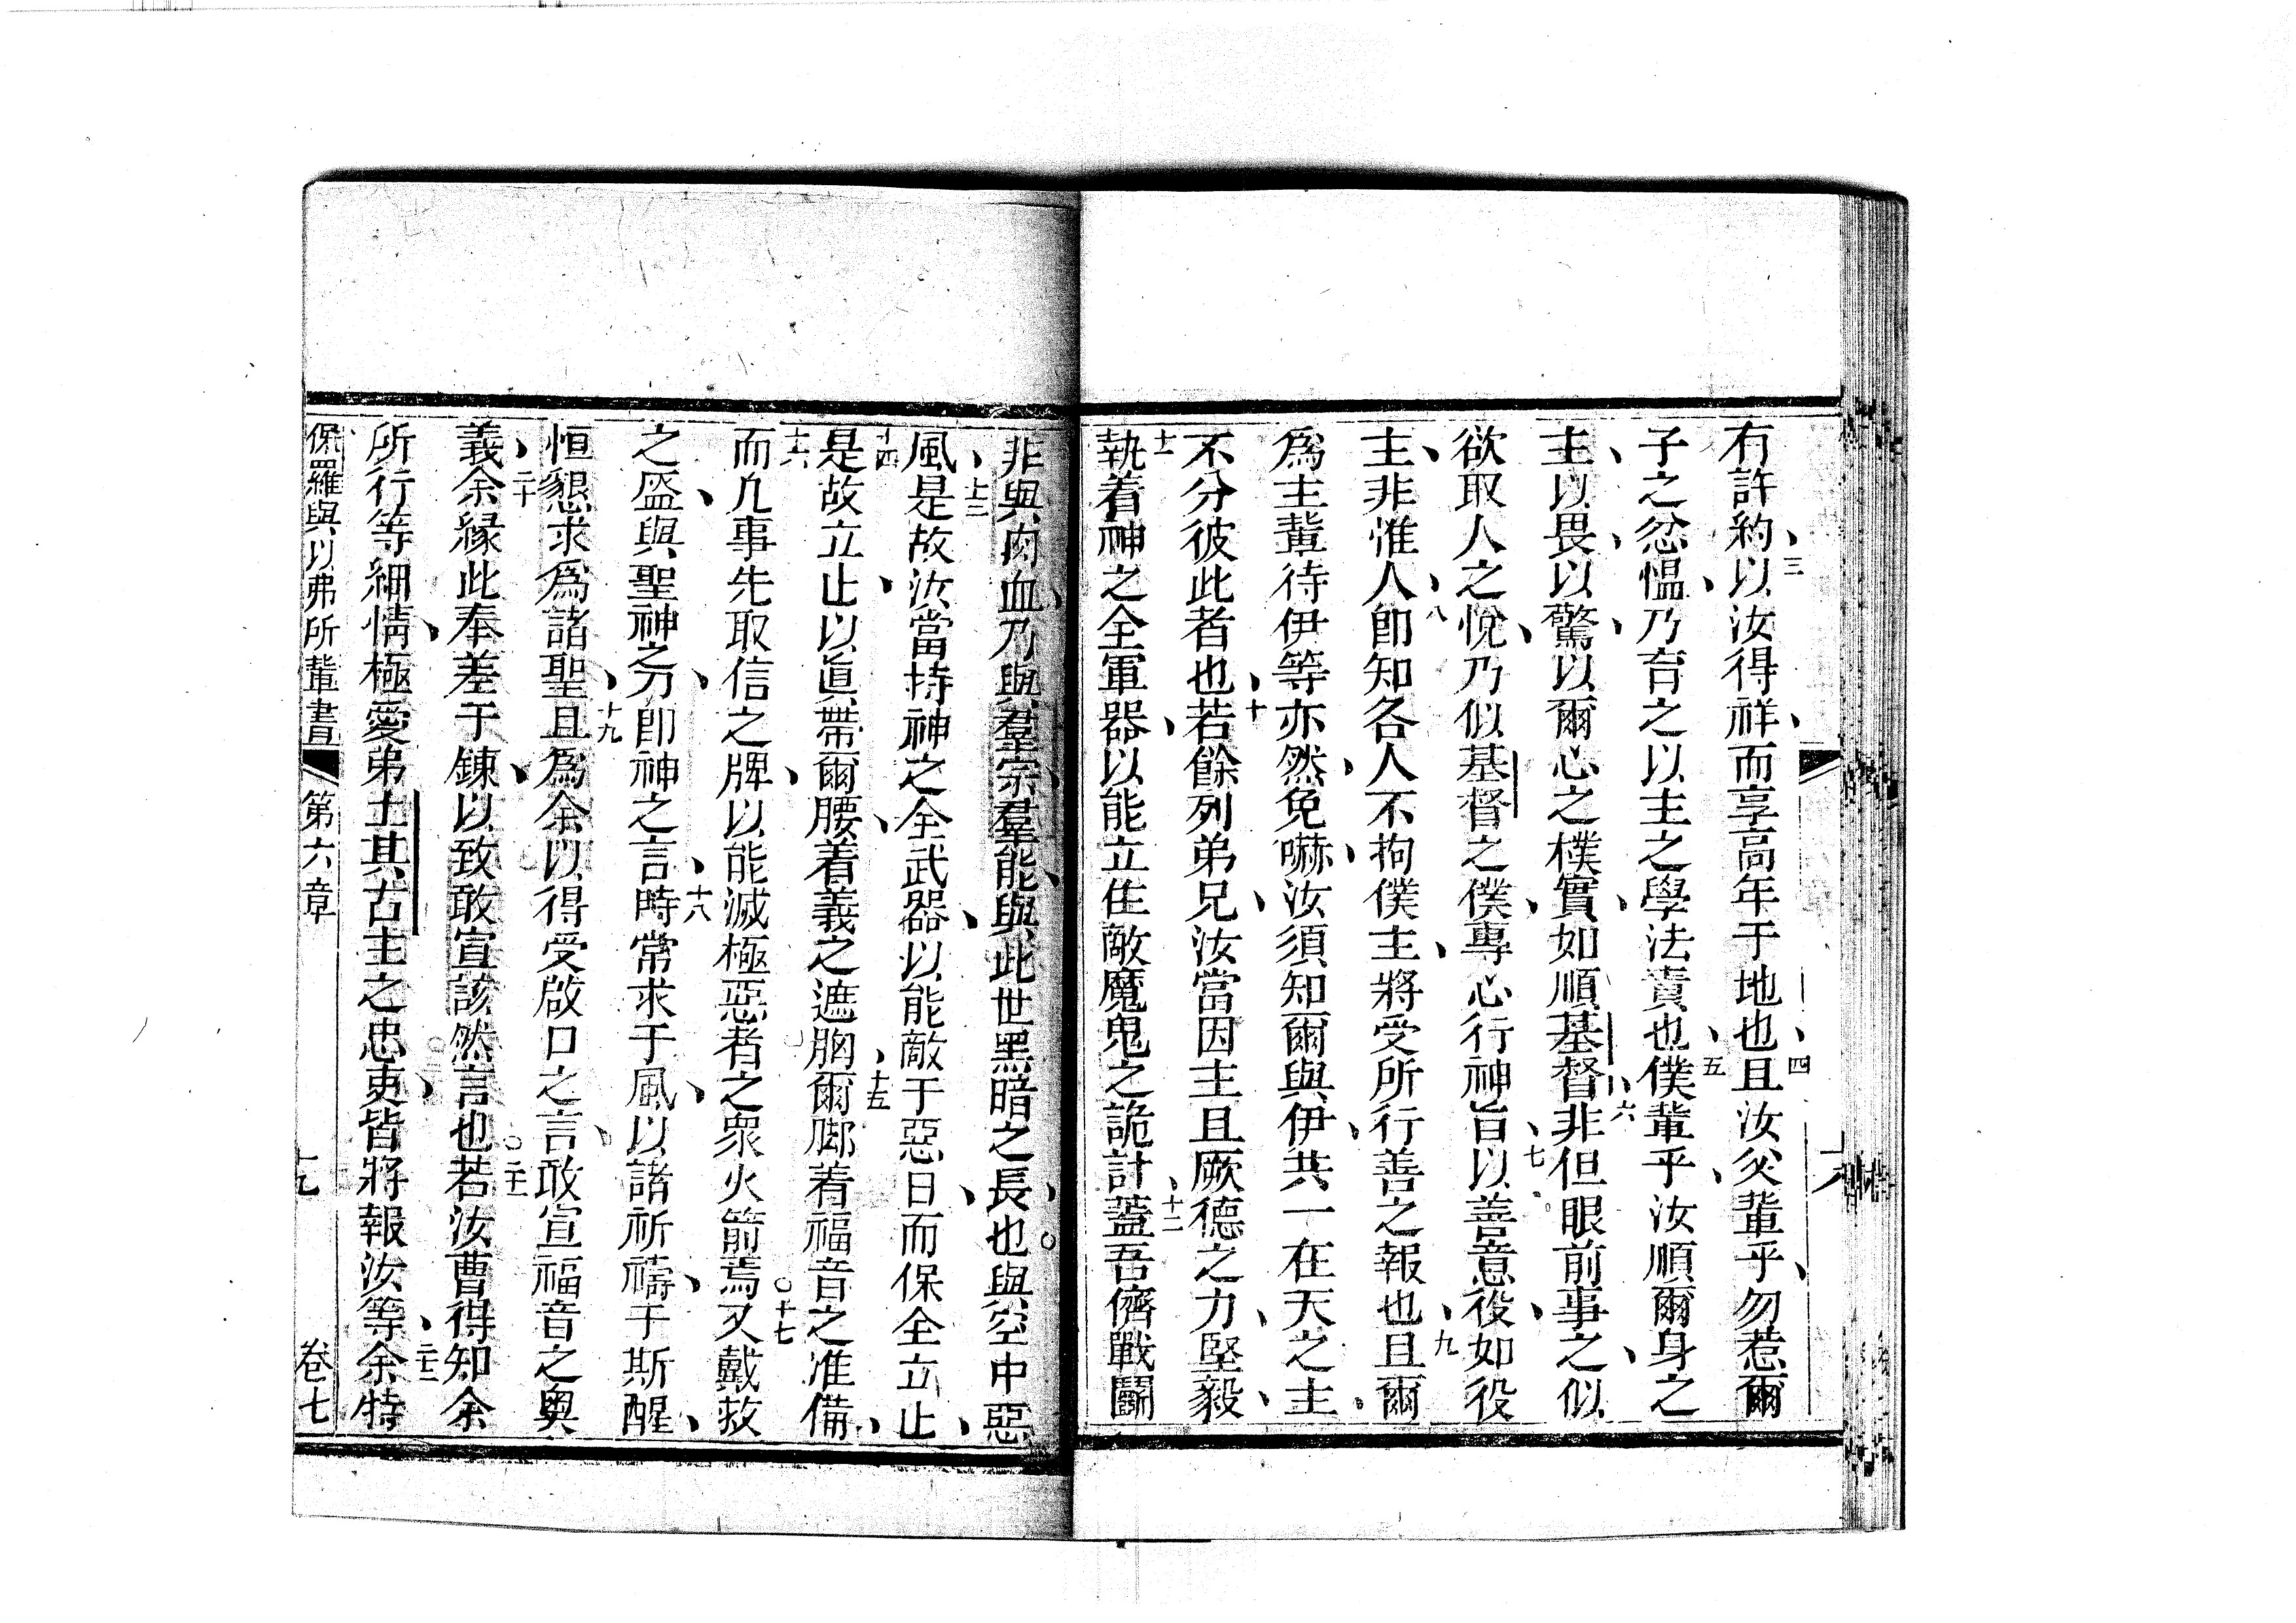 有許約、三以汝得祥、而享高年于地也、四且汝父輩乎、勿惹爾
子之忿慍、乃育之以主之學法責也、五僕輩乎、汝順爾身之
主、以畏、以驚、以爾心之樸實、如順基督、六非但眼前事之、似
欲取人之悅、乃似基督之僕、專心行神旨、七以善意役、如役
主、非惟人、八卽知各人不拘僕主、將受所行善之報也、九且爾
爲主輩待伊等亦然、免嚇、汝須知爾與伊、共一在天之主。
不分彼此者也、十若餘列弟兄、汝當因主且厥德之力、堅毅、
十一執着神之全軍器、以能立住敵魔鬼之詭計、十二蓋吾儕戰鬬
非與肉血、乃與羣宗、羣能、與此世黑暗之長、也。與空中惡
風、十三是故汝當持神之全武器、以能敵于惡日、而保全立止、
十四是故立止、以眞帶爾腰、着義之遮胸、十五爾脚着福音之准備、
十六而凡事先取信之牌、以能滅極惡者之衆火箭焉。十七又戴救
之盔、與聖神之刀、卽神之言、十八時常求于風、以諸祈禱、于斯醒、
恒懇求爲諸聖、十九且爲余以得受啟口之言、敢宣福音之奧
義、二十余緣此奉差于鍊、以致敢宣該然言也。二十一若汝曹得知余
所行等細情、極愛弟土其古主之忠吏、皆將報汝等、二十二余特
保羅與以弗所輩書 第六章 十九 卷七